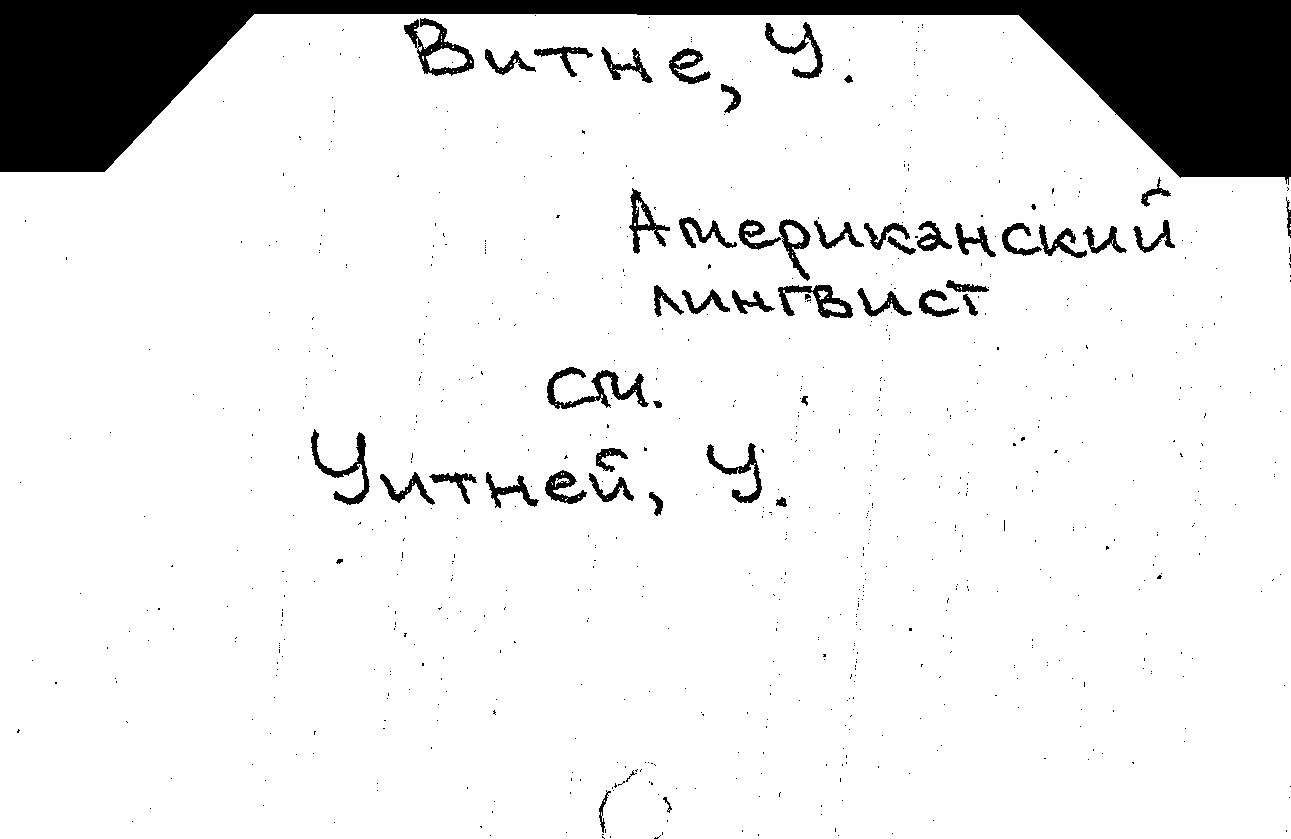 Витне, У.
Американский
лингвист
см.
Уитней, У.